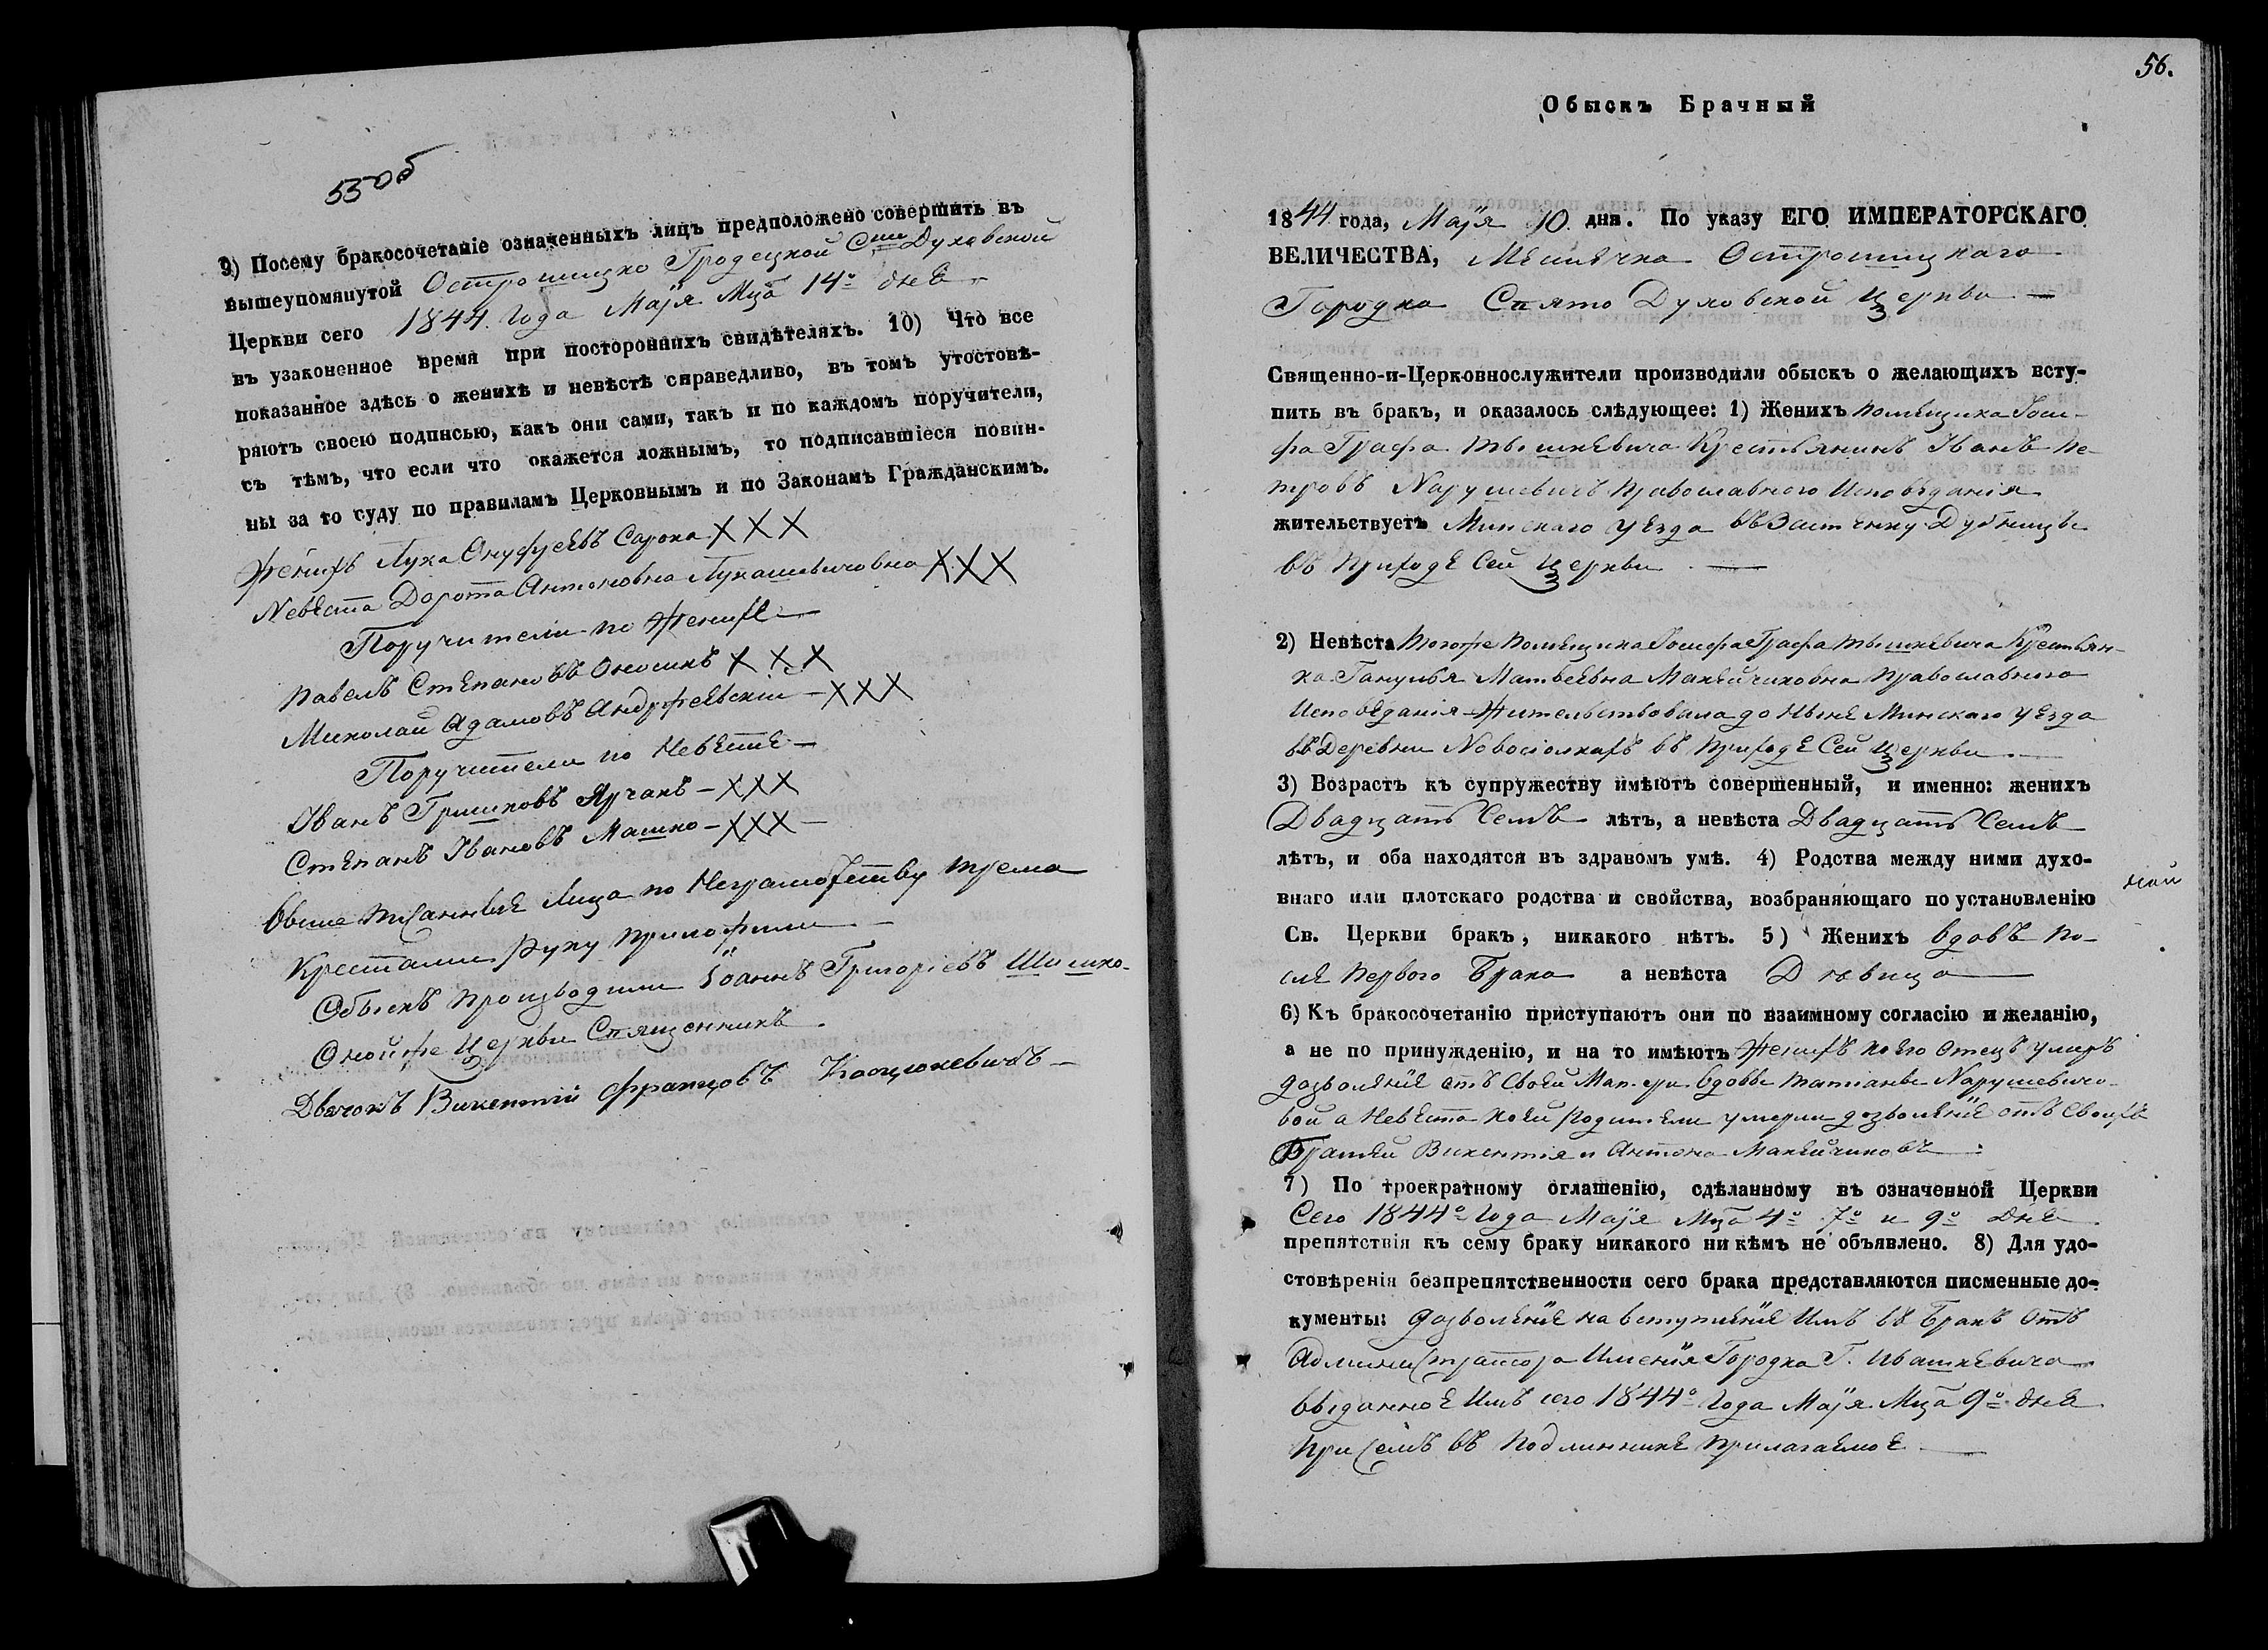 55 об
9) Посему бракосочетаніе означенныхъ лицъ предположено совершить въ
вышеупомянутой Острошицко Гродецкой Сто Духовской
Церкви сего 1844. года Маія Мца 14º дня
въ узаконенное время при постороннихъ свидѣтеляхъ. 10) Что все
показанное здѣсь о женихѣ и невѣстѣ справедливо, въ томъ утостовѣ-
ряютъ своею подписью, какъ они сами, такъ и по каждомъ поручители,
съ тѣмъ, что если что окажется ложнымъ, то подписавшіеся повин-
ны за то суду по правиламъ Церковнымъ и по Законамъ Гражданскимъ.
Женихъ Лука Онуфрѣевъ Сарока ХХХ
Невѣста Дорота Антоновна Лукашевичовна ХХХ
Поручители по Женихѣ
Павелъ Степановъ Оношкъ ХХХ
Миколай Адамовъ Андрѣевскій – ХХХ
Поручители по Невѣстѣ –
Іванъ Гришковъ Ярчакъ – ХХХ
Стѣпанъ Івановъ Машко – ХХХ –
Выше писанныѣ Лица по Неграмотству трема
Крестами руку приложили –
Обыскъ производили Іоаннъ Григоріевъ Шишко.
Оной же Церкви Священникъ.
Дьячокъ Викентій Францовъ Коцюкевичъ –
56.
Обыскъ Брачный
1844 года, Маія 10. дня. По указу ЕГО ИМПЕРАТОРСКАГО
ВЕЛИЧЕСТВА, Мѣстѣчка Острошицкаго
Городка Свято Духовской Церкви –
Священно-и-Церковнослужители производили обыскъ о желающихъ всту-
пить въ бракъ, и оказалось слѣдующее: 1) Женихъ помѣщика Іоси-
фа Графа Тышкѣвича Крестьянинъ Іванъ Пе-
тровъ Нарушевичъ Православного Исповѣданія
жительствуетъ Минскаго уѣзда въ Застѣнку Дубницы
въ Приходѣ Сей Церкви
2) Невѣста тогоже Помѣщика Іосифа Графа Тышкѣвича Крестьян-
ка Ганулья Матвеѣвна Макѣйчиковна Православного
Исповѣданія Жительствовала до Нынѣ Минскаго уѣзда
въ Деревни Новосіолкахъ въ Приходѣ Сей Церкви
3) Возрастъ къ супружеству имѣютъ совершенный, и именно: жених
Двадцать Семъ лѣтъ, а невѣста Двадцать Семъ
лѣтъ, и оба находятся въ здравомъ умѣ. 4) Родства между ними духо-
внаго или плотскаго родства и свойства, возбраняющаго по установленію
Св. Церкви бракъ, никакого нѣтъ. 5) Женихъ вдовъ по-
слѣ первого Брака а невѣста Дѣвица
6) Къ бракосочетанію приступаютъ они по взаимному согласію и желанію,
а не по принужденію, и на то имѣютъ Женихъ коего отецъ умеръ
дозволѣніѣ отъ своей Матери вдовы Татіаны Нарушевичо-
вой а Невѣста коей родители умерли дозволѣніѣ отъ своихъ
Братѣй Викентія и Антона Макѣйчиковъ
7) По троекратному оглашенію, сдѣланному въ означенной Церкви
Сего 1844º года Маія Мца 4º 7º и 9º дня
препятствія къ сему браку никакого ни кѣмъ не объявлено. 8) Для удо-
стовѣренія безпрепятственности сего брака представляются писменные до-
кументы: дозволѣніѣ на вступлѣніѣ Имъ въ Бракъ отъ
Администратора Имѣнія Городка Г. Ивашкѣвича
выданноѣ Имъ сего 1844º года Маія Мца 9º дня
при семъ въ подлинникѣ прилагаѣмоѣ